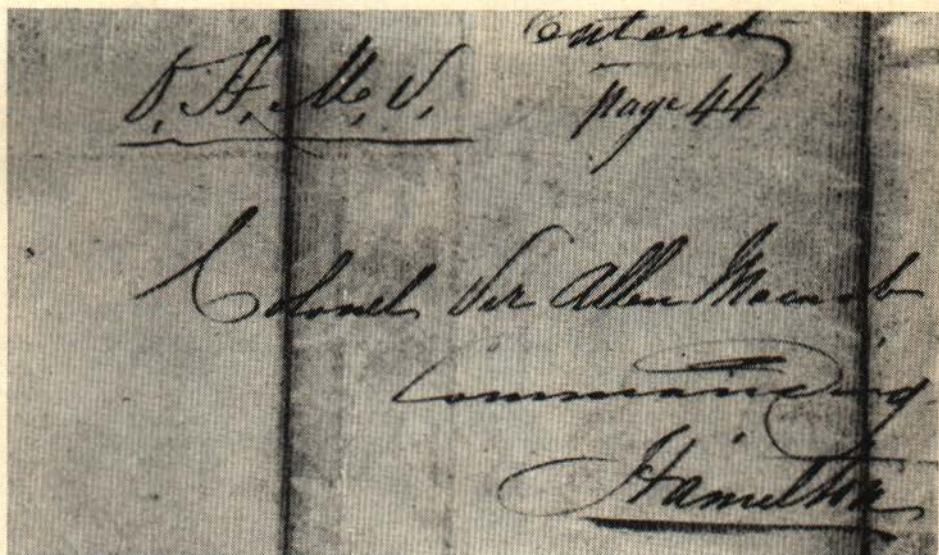 Entered
O.H.M.S.
page 44
Colonel Sir Allen Macnab
Commanding
Hamilton